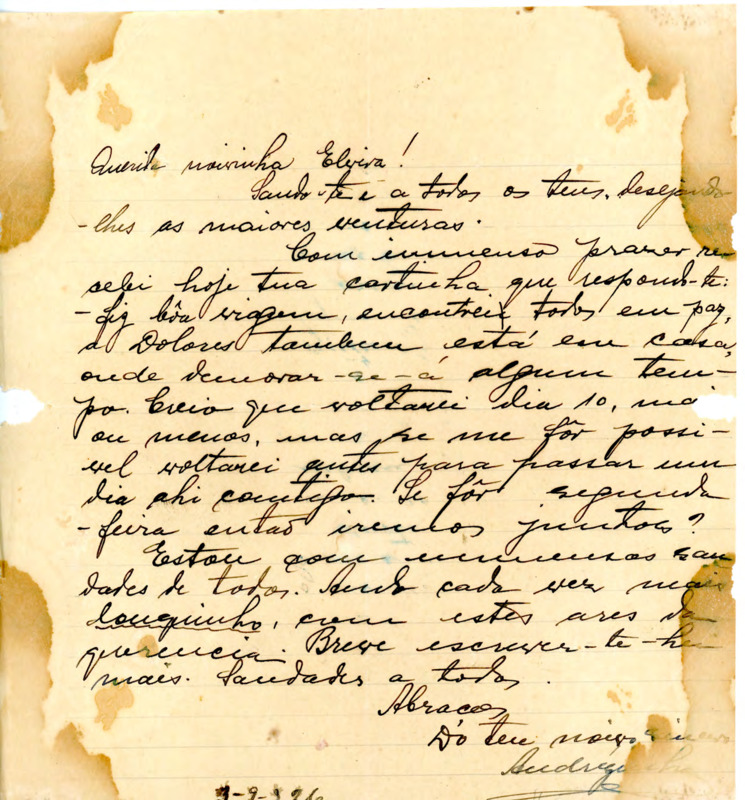 Querida noivinha Elvira!
Saudo-te e a todos os teus, desejando-
-lhes as maiores venturas.
Com immenso prazer re-
cebi hoje tua cartinha que respondo-te:
-Fiz bôa viagem, encontrei todos em paz,
a Dolores tambem está em casa,
onde demorar-se-á algum tem-
po. Creio que voltarei dia 10, mai
ou menos, mas se me fôr possi-
vel voltarei antes para passar um
dia ahi comtigo. Se fôr segunda
-feira então iremos juntos?
Estou com immensas sau
dades de todos. Ando cada vez mais
louquinho, com estes ares da
querencia. Breve escrever-te-hei
mais. Saudades a todos.
Abraços
Do teu noivo sincero